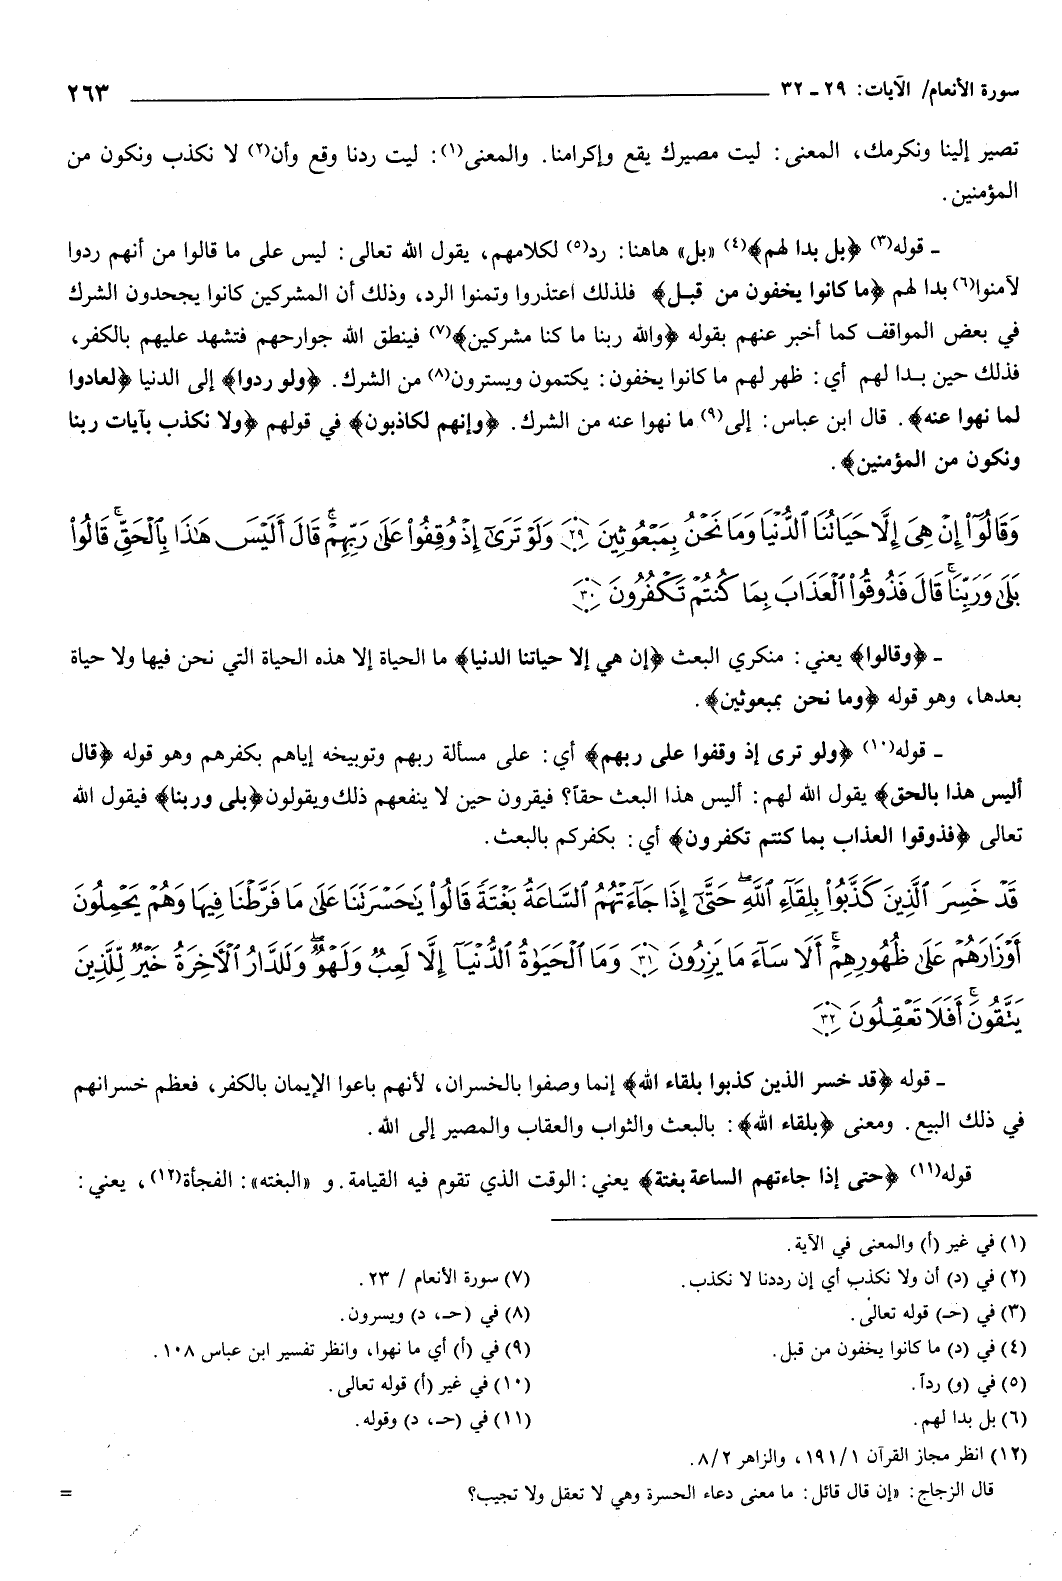 سورة الأنعام/ الآيات: ٢٩ ـ ٣٢ ٢٦٣
تصير إلينا ونكرمك، المعنى: ليت مصيرك يقع وإكرامنا. والمعنى(١): ليت ردنا وقع وأن(٢) لا نكذب ونكون من
المؤمنين.
ـ قوله(٣) ﴿بل بدا لهم﴾(٤) «بل» هاهنا: رد(٥) لكلامهم، يقول الله تعالى: ليس على ما قالوا من أنهم ردوا
لآمنوا(٦) بدا لهم ﴿ما كانوا يخفون من قبل﴾ فلذلك اعتذروا وتمنوا الرد، وذلك أن المشركين كانوا يجحدون الشرك
في بعض المواقف كما أخبر عنهم بقوله ﴿والله ربنا ما كنا مشركين﴾(٧) فينطق الله جوارحهم فتشهد عليهم بالكفر،
فذلك حين بدا لهم أي: ظهر لهم ما كانوا يخفون: يكتمون ويسترون(٨) من الشرك. ﴿ولو ردوا﴾ إلى الدنيا ﴿لعادوا
لما نهوا عنه﴾. قال ابن عباس: إلى(٩) ما نهوا عنه من الشرك. ﴿وإنهم لكاذبون﴾ في قولهم ﴿ولا نكذب بآيات ربنا
ونكون من المؤمنين﴾.
وَقَالُوٓا۟ إِنْ هِىَ إِلَّا حَيَاتُنَا ٱلدُّنْيَا وَمَا نَحْنُ بِمَبْعُوثِينَ ﴿٢٩﴾ وَلَوْ تَرَىٰٓ إِذْ وُقِفُوا۟ عَلَىٰ رَبِّهِمْ ۚ قَالَ أَلَيْسَ هَٰذَا بِٱلْحَقِّ ۚ قَالُوا۟
بَلَىٰ وَرَبِّنَا ۚ قَالَ فَذُوقُوا۟ ٱلْعَذَابَ بِمَا كُنتُمْ تَكْفُرُونَ ﴿٣٠﴾
ـ ﴿وقالوا﴾ يعني: منكري البعث ﴿إن هي إلا حياتنا الدنيا﴾ ما الحياة إلا هذه الحياة التي نحن فيها ولا حياة
بعدها، وهو قوله ﴿وما نحن بمبعوثين﴾.
ـ قوله(١٠) ﴿ولو ترى إذ وقفوا على ربهم﴾ أي: على مسألة ربهم وتوبيخه إياهم بكفرهم وهو قوله ﴿قال
أليس هذا بالحق﴾ يقول الله لهم: أليس هذا البعث حقاً؟ فيقرون حين لا ينفعهم ذلك ويقولون ﴿بلى وربنا﴾ فيقول الله
تعالى ﴿فذوقوا العذاب بما كنتم تكفرون﴾ أي: بكفركم بالبعث.
قَدْ خَسِرَ ٱلَّذِينَ كَذَّبُوا۟ بِلِقَآءِ ٱللَّهِ ۖ حَتَّىٰٓ إِذَا جَآءَتْهُمُ ٱلسَّاعَةُ بَغْتَةً قَالُوا۟ يَٰحَسْرَتَنَا عَلَىٰ مَا فَرَّطْنَا فِيهَا وَهُمْ يَحْمِلُونَ
أَوْزَارَهُمْ عَلَىٰ ظُهُورِهِمْ ۚ أَلَا سَآءَ مَا يَزِرُونَ ﴿٣١﴾ وَمَا ٱلْحَيَوٰةُ ٱلدُّنْيَآ إِلَّا لَعِبٌ وَلَهْوٌ ۖ وَلَلدَّارُ ٱلْءَاخِرَةُ خَيْرٌ لِّلَّذِينَ
يَتَّقُونَ ۚ أَفَلَا تَعْقِلُونَ ﴿٣٢﴾
ـ قوله ﴿قد خسر الذين كذبوا بلقاء الله﴾ إنما وصفوا بالخسران، لأنهم باعوا الإيمان بالكفر، فعظم خسرانهم
في ذلك البيع. ومعنى ﴿بلقاء الله﴾: بالبعث والثواب والعقاب والمصير إلى الله.
قوله(١١) ﴿حتى إذا جاءتهم الساعة بغتة﴾ يعني: الوقت الذي تقوم فيه القيامة. و «البغته»: الفجأة(١٢)، يعني:
(١) في غير (أ) والمعنى في الآية.
(٢) في (د) أن ولا نكذب أي إن رددنا لا نكذب.
(٣) في (حـ) قوله تعالى.
(٤) في (د) ما كانوا يخفون من قبل.
(٥) في (و) رداً.
(٦) بل بدا لهم.
(٧) سورة الأنعام / ٢٣.
(٨) في (حـ، د) ويسرون.
(٩) في (أ) أي ما نهوا، وانظر تفسير ابن عباس ١٠٨.
(١٠) في غير (أ) قوله تعالى.
(١١) في (حـ، د) وقوله.
(١٢) انظر مجاز القرآن ١٩١/١، والزاهر ٨/٢.
قال الزجاج: «إن قال قائل: ما معنى دعاء الحسرة وهي لا تعقل ولا تجيب؟ =